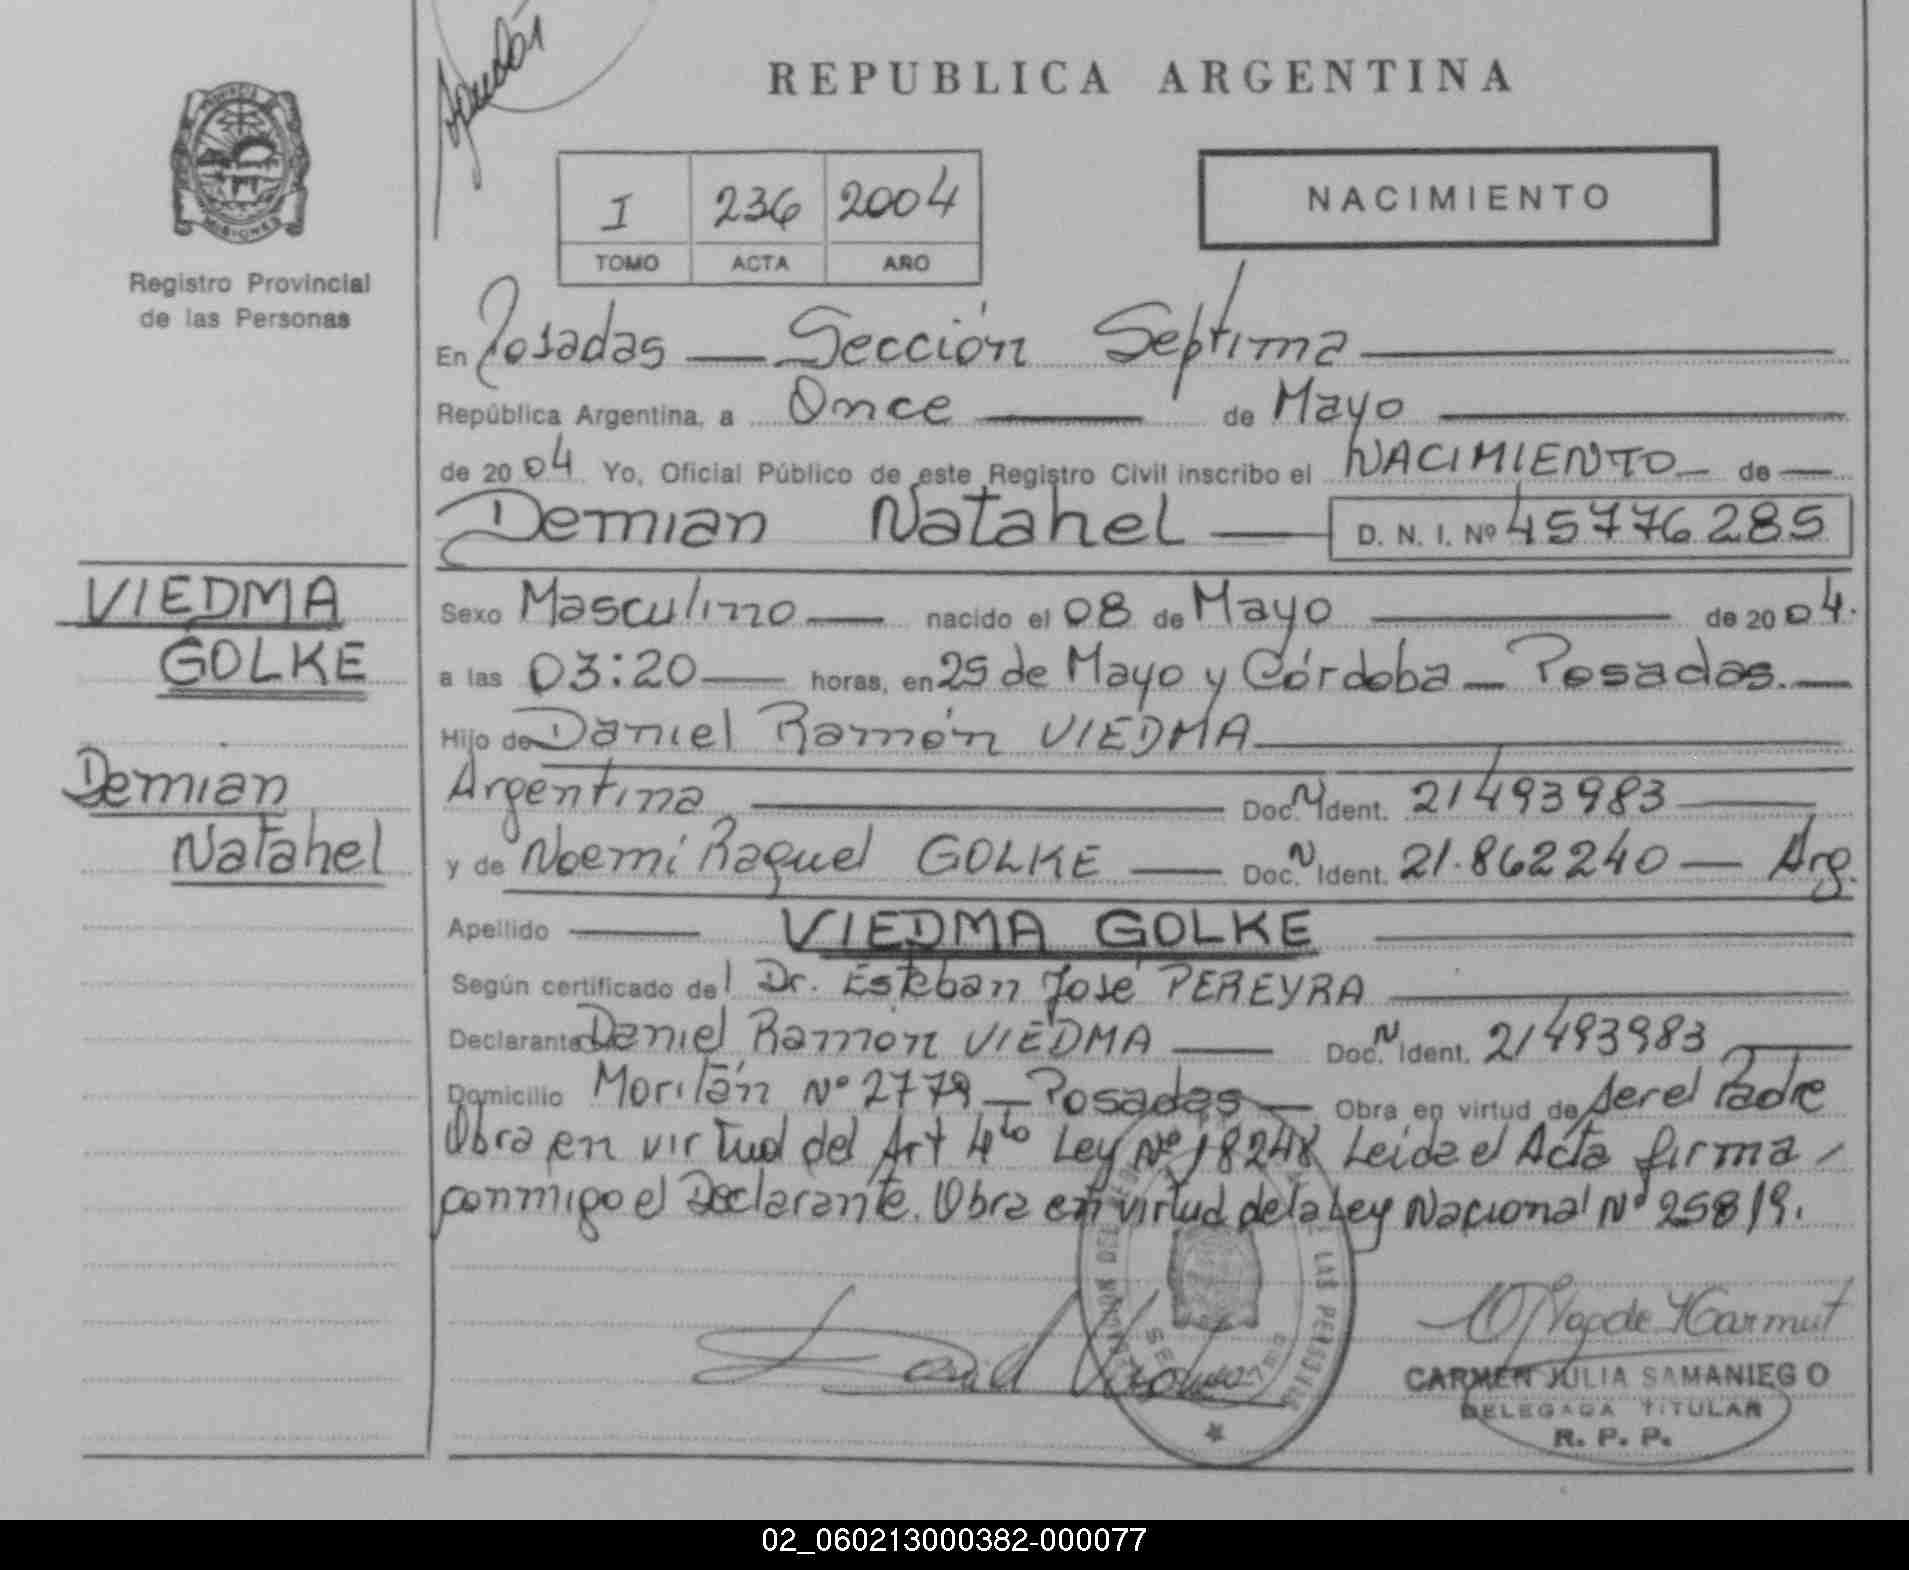 REPUBLICA ARGENTINA
PROVINCIA DE
MISIONES
Registro Provincial
de las Personas
I 236 2004
TOMO ACTA AÑO
NACIMIENTO
En Posadas — Sección Septima
República Argentina, a Once de Mayo
de 2004 Yo, Oficial Público de este Registro Civil inscribo el NACIMIENTO de
Demian Natahel D. N. I. Nº 45776285
VIEDMA
GOLKE
Demian
Natahel
Sexo Masculino nacido el 08 de Mayo de 2004.
a las 03:20 horas, en 25 de Mayo y Córdoba — Posadas.
Hijo de Daniel Ramón VIEDMA
Argentina Doc. N Ident. 21493983
y de Noemí Raquel GOLKE Doc. N Ident. 21.862240 — Arg.
Apellido VIEDMA GOLKE
Según certificado del Dr. Esteban José PEREYRA
Declarante Daniel Ramón VIEDMA Doc. N Ident. 21493983
Domicilio Nº 2779 — Posadas — Obra en virtud de ser el Padre
Obra en virtud del Art 4to Ley Nº 18248 Leída el Acta firma
conmigo el Declarante. Obra en virtud de la Ley Nacional Nº 25819.
CARMEN JULIA SAMANIEGO
DELEGADA TITULAR
R. P. P.
02_060213000382-000077